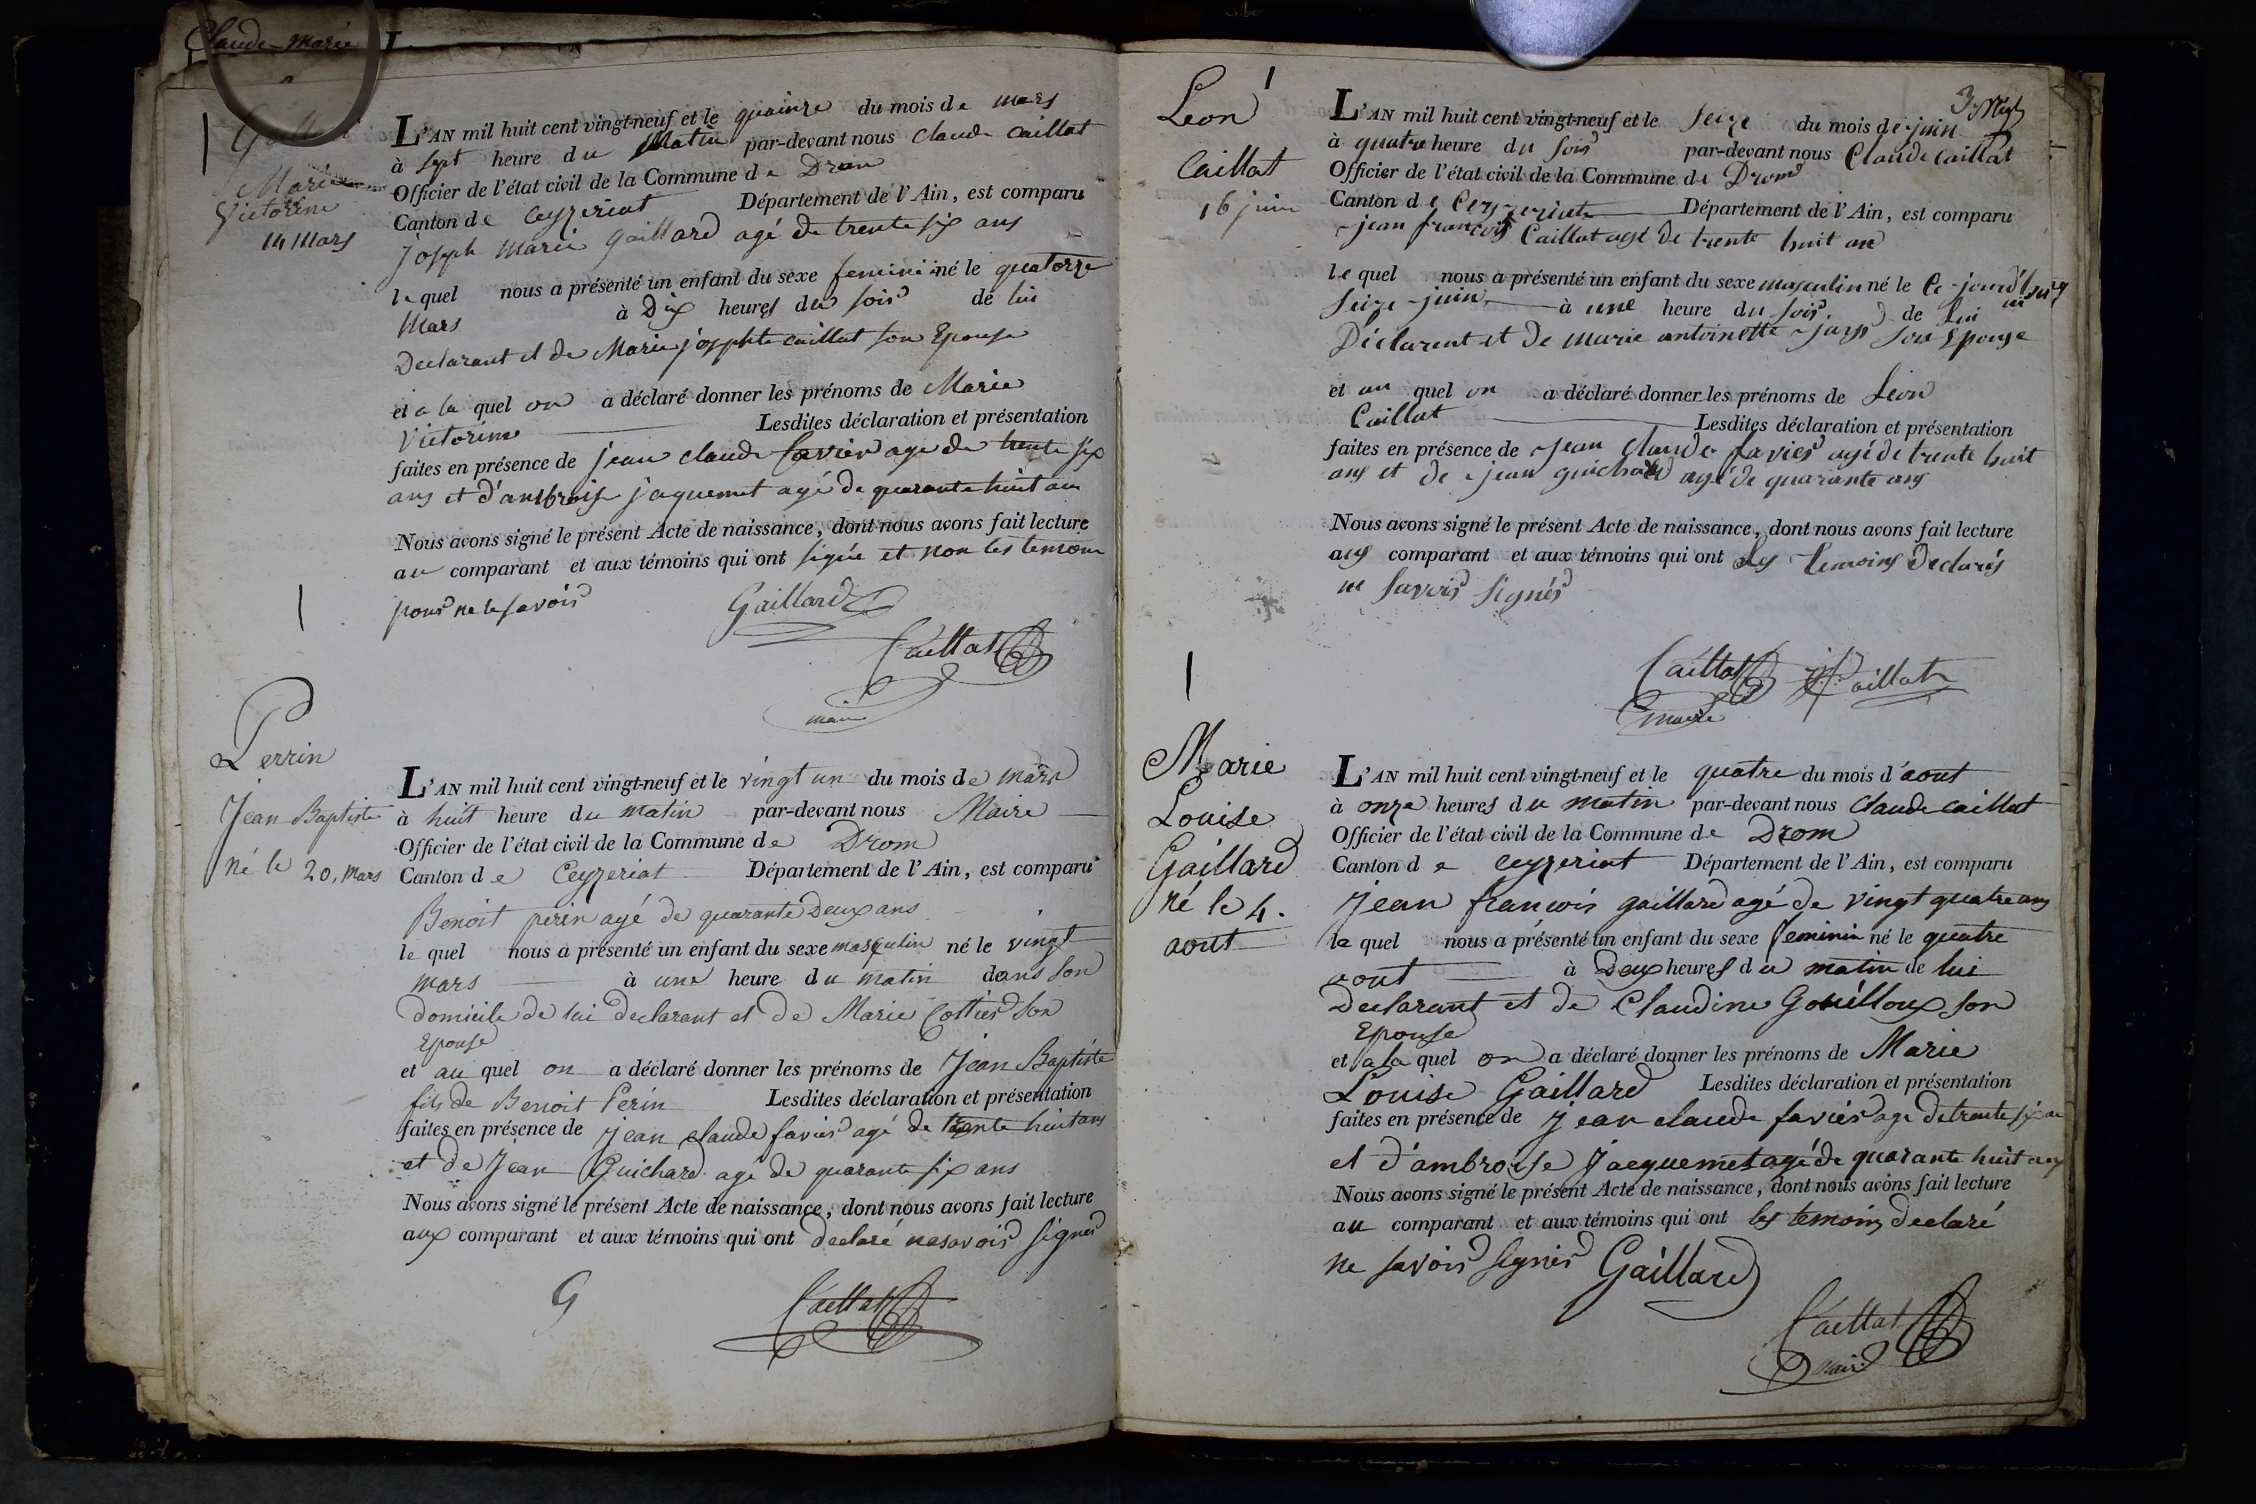 Claude-Marie
Marie
Victorine
14 Mars
L'AN mil huit cent vingt-neuf et le quainze du mois de mars
à sept heure du Matin par-devant nous claude caillat
Officier de l'état civil de la Commune de Drom
Canton de Ceyzeriat Département de l'Ain, est comparu
joseph marie gaillard agé de trente six ans
le quel nous a présenté un enfant du sexe feminin né le quatorze
Mars à Dix heures du soir de lui
Declarant et de Marie josephte caillat son Epouse
et a la quel on a déclaré donner les prénoms de Marie
Victorine Lesdites déclaration et présentation
faites en présence de jean claude favier age de trente six
ans et d'ambroise jaquemet agé de quarante huit an
Nous avons signé le présent Acte de naissance, dont nous avons fait lecture
au comparant et aux témoins qui ont signée et non les temoin
pour ne le savoir Gaillard
Caillat
maire
Perrin
Jean Baptiste
né le 20, mars
L'AN mil huit cent vingt-neuf et le vingt un du mois de mars
à huit heure du matin par-devant nous Maire
Officier de l'état civil de la Commune de Drom
Canton de Ceyzeriat Département de l'Ain, est comparu
Benoit perin agé de quarante Deux ans
le quel nous a présenté un enfant du sexe masculin né le vingt
mars à une heure du matin dans son
domicile de lui declarant et de Marie Cottier son
Epouse
et au quel on a déclaré donner les prénoms de Jean Baptiste
fils de Benoit Perin Lesdites déclaration et présentation
faites en présence de jean claude favier agé de trente huit ans
et de Jean Guichard agé de quarante six ans
Nous avons signé le présent Acte de naissance, dont nous avons fait lecture
aux comparant et aux témoins qui ont declaré ne savoir signer
Caillat
3
Léon
Caillat
16 juin
L'AN mil huit cent vingt-neuf et le seize du mois de juin
à quatre heure du soir par-devant nous Claude Caillat
Officier de l'état civil de la Commune de Drom
Canton de Ceyzeriat Département de l'Ain, est comparu
jean francois Caillat agé de trente huit an
le quel nous a présenté un enfant du sexe masculin né le Ce jourd'hui
seize juin à une heure du soir de Lui
Déclarent et de marie antoinette son Epouse
et au quel on a déclaré donner les prénoms de Léon
Caillat Lesdites déclaration et présentation
faites en présence de jean claude favier agé de trente huit
ans et de jean guichard agé de quarante ans
Nous avons signé le présent Acte de naissance, dont nous avons fait lecture
aux comparant et aux témoins qui ont Les temoins Declarés
ne savoir signér
Caillat Caillat
maire
Marie
Louise
Gaillard
né le 4.
aout
L'AN mil huit cent vingt-neuf et le quatre du mois d'aout
à onze heures du matin par-devant nous claude caillat
Officier de l'état civil de la Commune de Drom
Canton de Ceyzeriat Département de l'Ain, est comparu
jean francois gaillard agé de vingt quatre ans
le quel nous a présenté un enfant du sexe feminin né le quatre
aout à Deux heures du matin de lui
Declarant et de Claudine Gouilloux son
Epouse
et a la quel on a déclaré donner les prénoms de Marie
Louise Gaillard Lesdites déclaration et présentation
faites en présence de jean claude favier age de trente six an
et d'ambroise jacquemet agé de quarante huit ans
Nous avons signé le présent Acte de naissance, dont nous avons fait lecture
au comparant et aux témoins qui ont les temoins declaré
ne savoir signer Gaillard
Caillat
maire